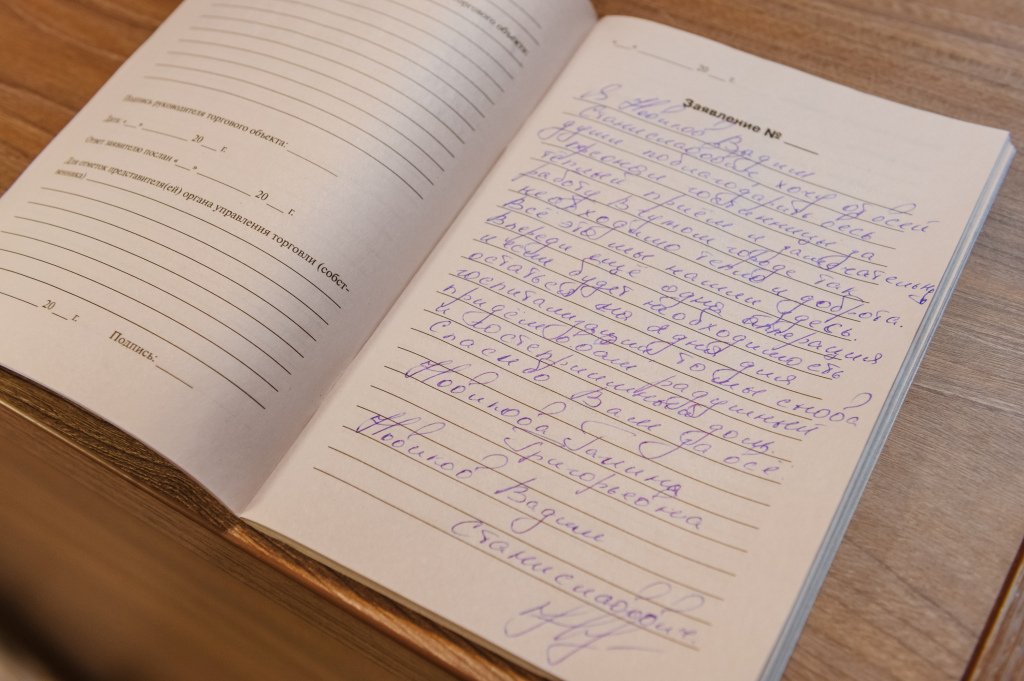 торгового объекта:
Подпись руководителя торгового объекта:
Дата «__» ______ 20__ г.
Ответ заявителю послан «__» ______ 20__ г.
Для отметок представителя(ей) органа управления торговли (собст-
венника)
______ 20__ г.
Подпись:______
«__» ______ 20__ г.
Заявление № ____
Я Новиков Вадим
Станиславович хочу от всей
души поблагодарить весь
гостиницы за
тёплый приём и замечательную
работу. В чужом городе так
необходимо тепло доброта.
Всё это мы нашли здесь.
Впереди ещё одна операция
и если будет необходимость
остаться на дня для
госпитализации, то мы снова
придём в Ваш радушный
и гостеприимный дом.
Спасибо Вам за все
Новикова Галина
Григорьевна
Новиков Вадим
Станиславович.